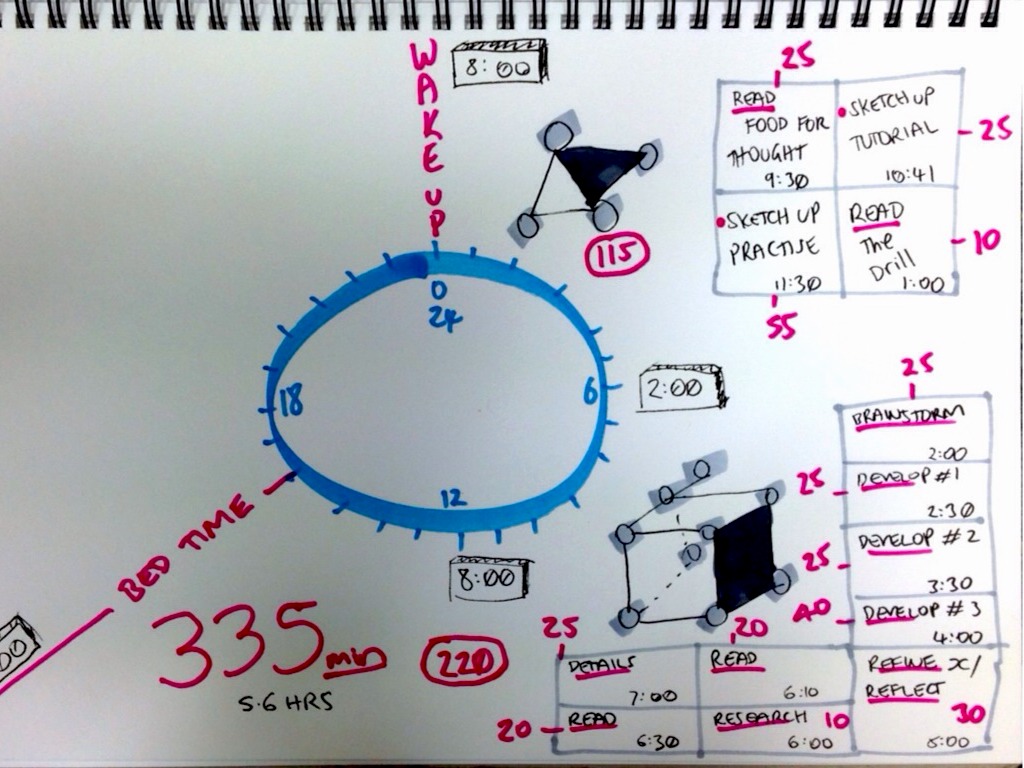 WAKE UP
8:00
25
READ
FOOD FOR
THOUGHT
9:30
SKETCHUP
TUTORIAL
10:41
25
SKETCH UP
PRACTISE
11:30
READ
The
Drill
1:00
10
55
115
0
24
6
12
18
2:00
8:00
BED TIME
00
335 min
5.6 HRS
220
25
BRAINSTORM
2:00
25
DEVELOP #1
2:30
25
DEVELOP #2
3:30
40
DEVELOP #3
4:00
REFINE
REFLECT
30
5:00
25
DETAILS
7:00
20
READ
6:10
20
READ
6:30
RESEARCH 10
6:00